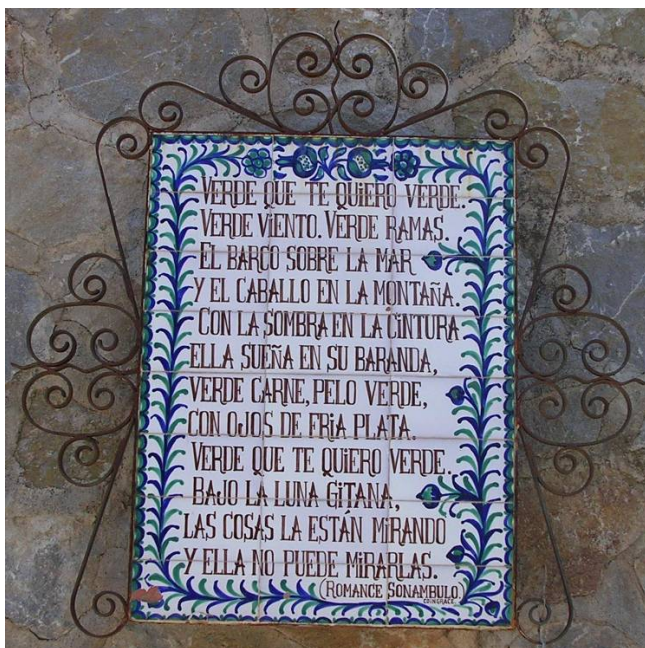 VERDE QUE TE QUIERO VERDE.
VERDE VIENTO. VERDE RAMAS.
EL BARCO SOBRE LA MAR
Y EL CABALLO EN LA MONTAÑA.
CON LA SOMBRA EN LA CINTURA
ELLA SUEÑA EN SU BARANDA,
VERDE CARNE, PELO VERDE,
CON OJOS DE FRIA PLATA.
VERDE QUE TE QUIERO VERDE.
BAJO LA LUNA GITANA,
LAS COSAS LA ESTÁN MIRANDO
Y ELLA NO PUEDE MIRARLAS.
(ROMANCE SONAMBULO.
COINGRACE